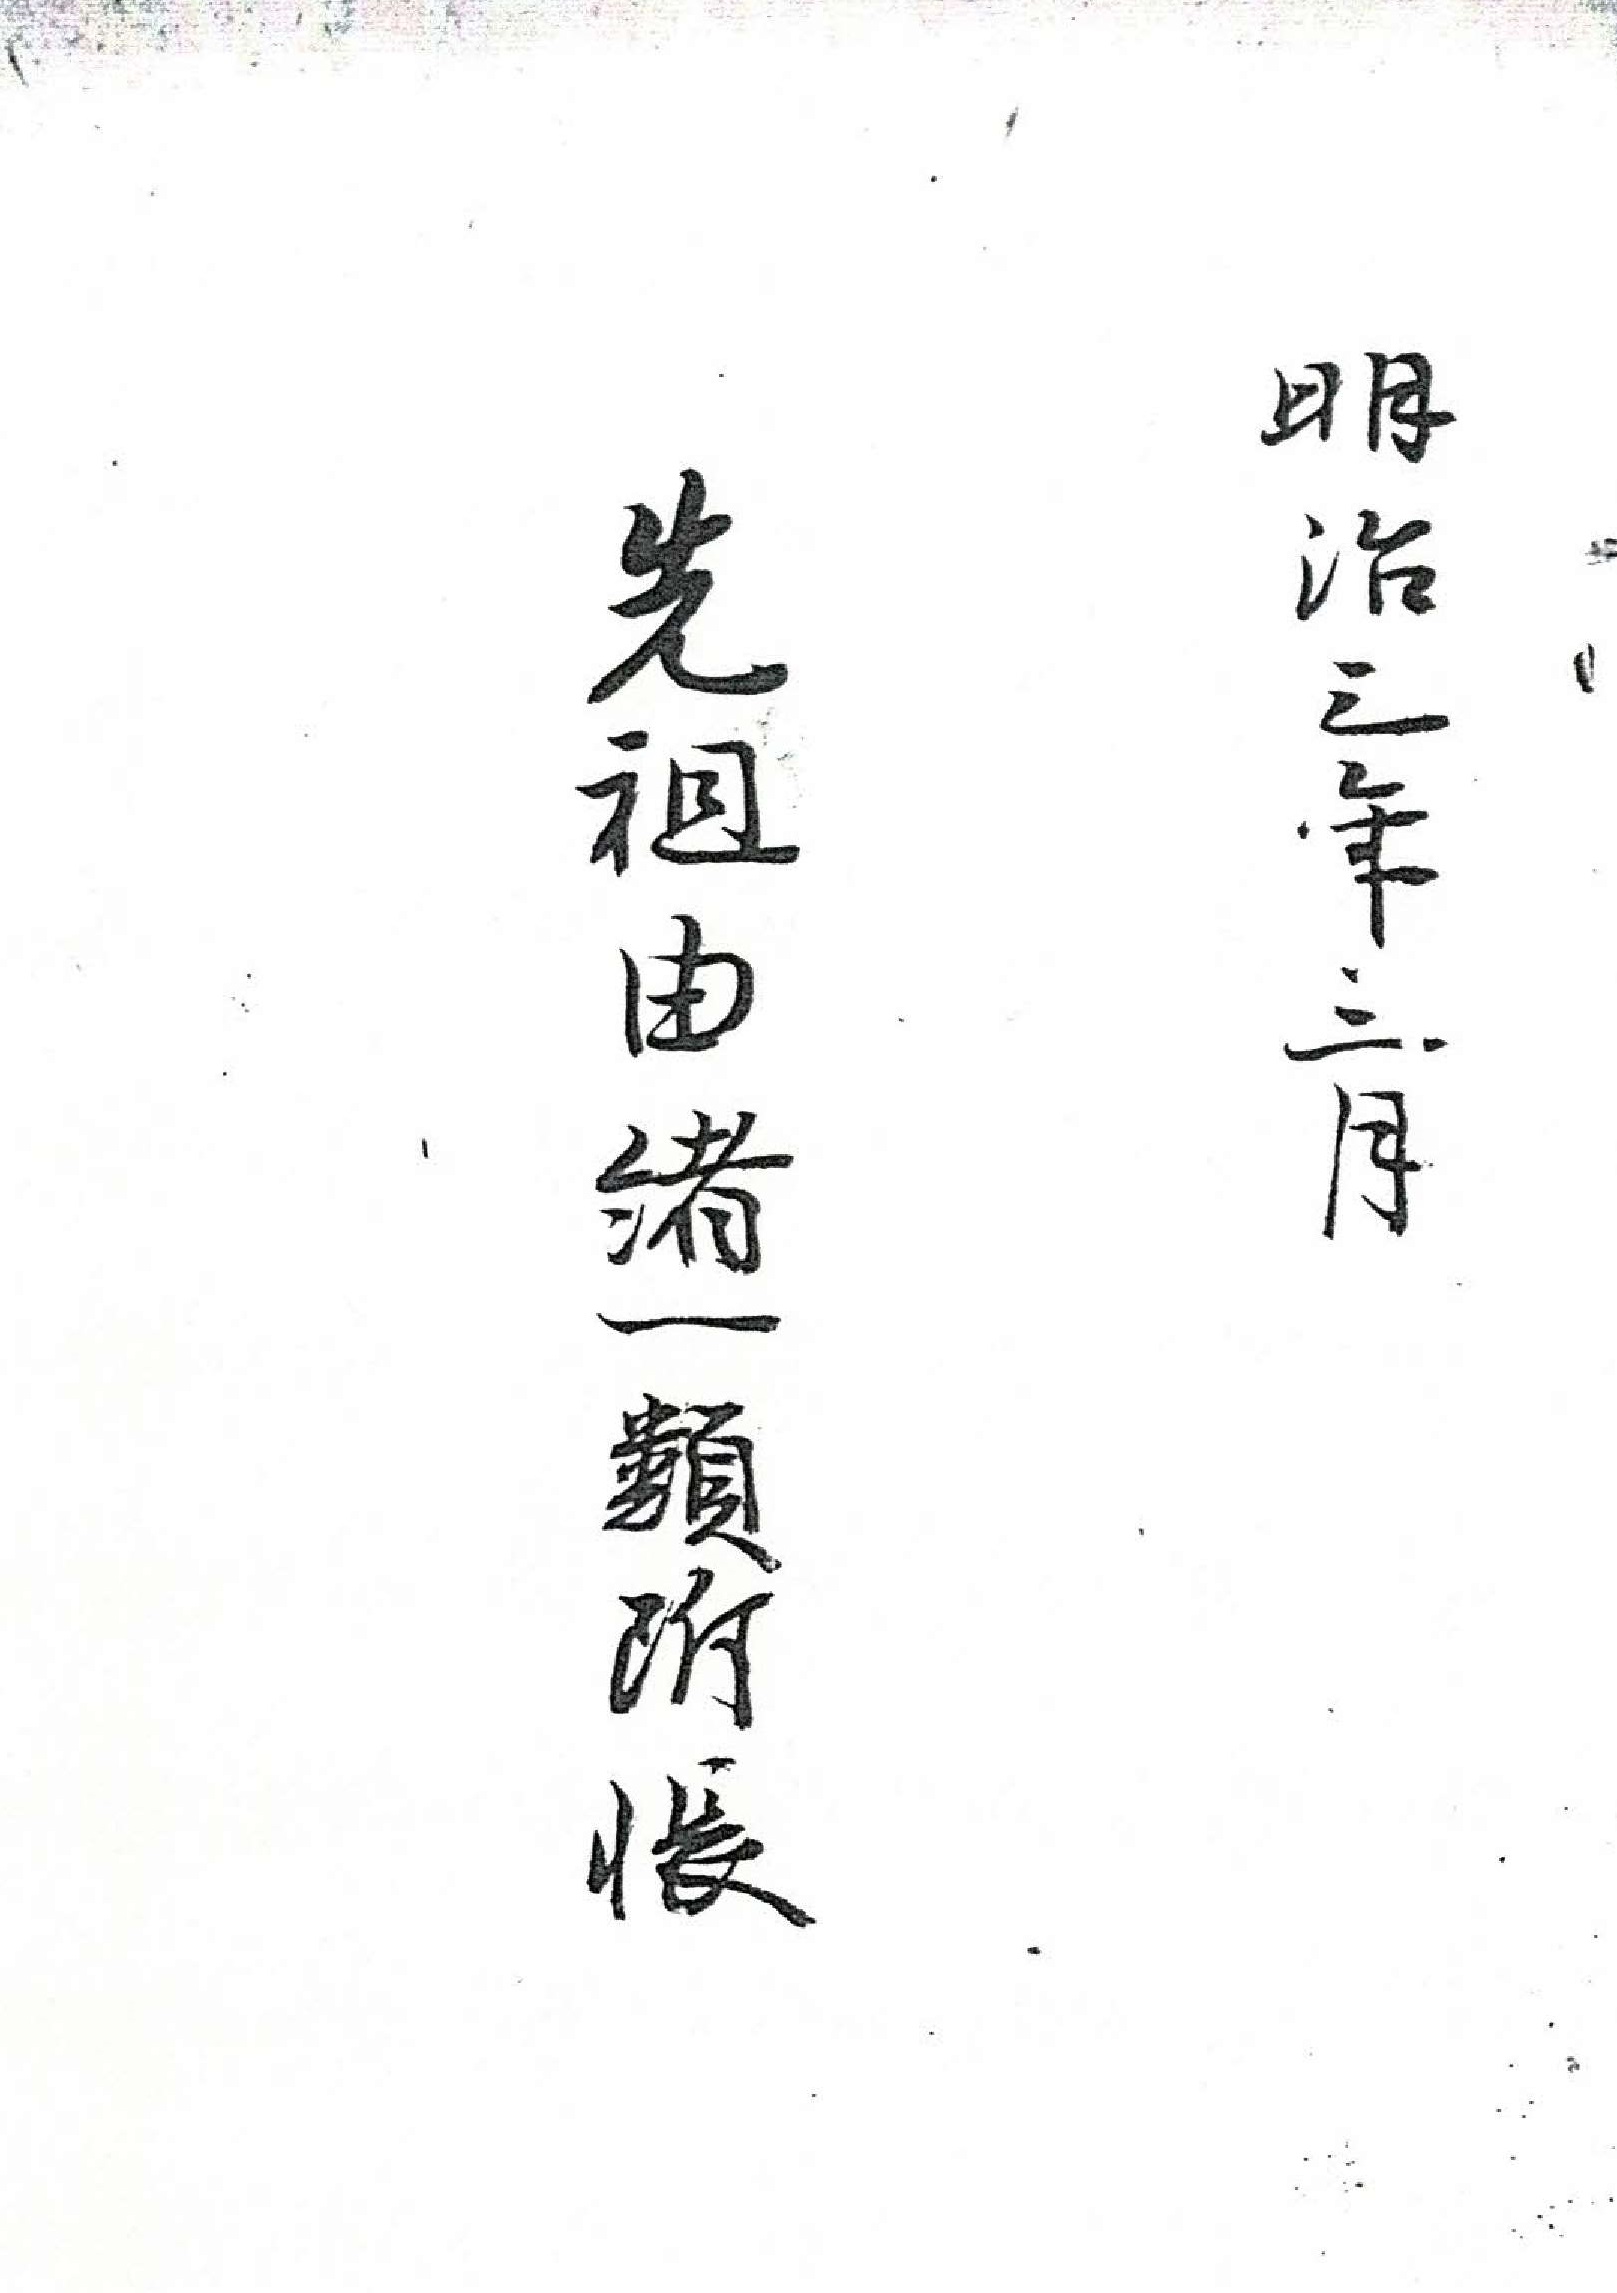 明治三年三月
先祖由緒一類附帳